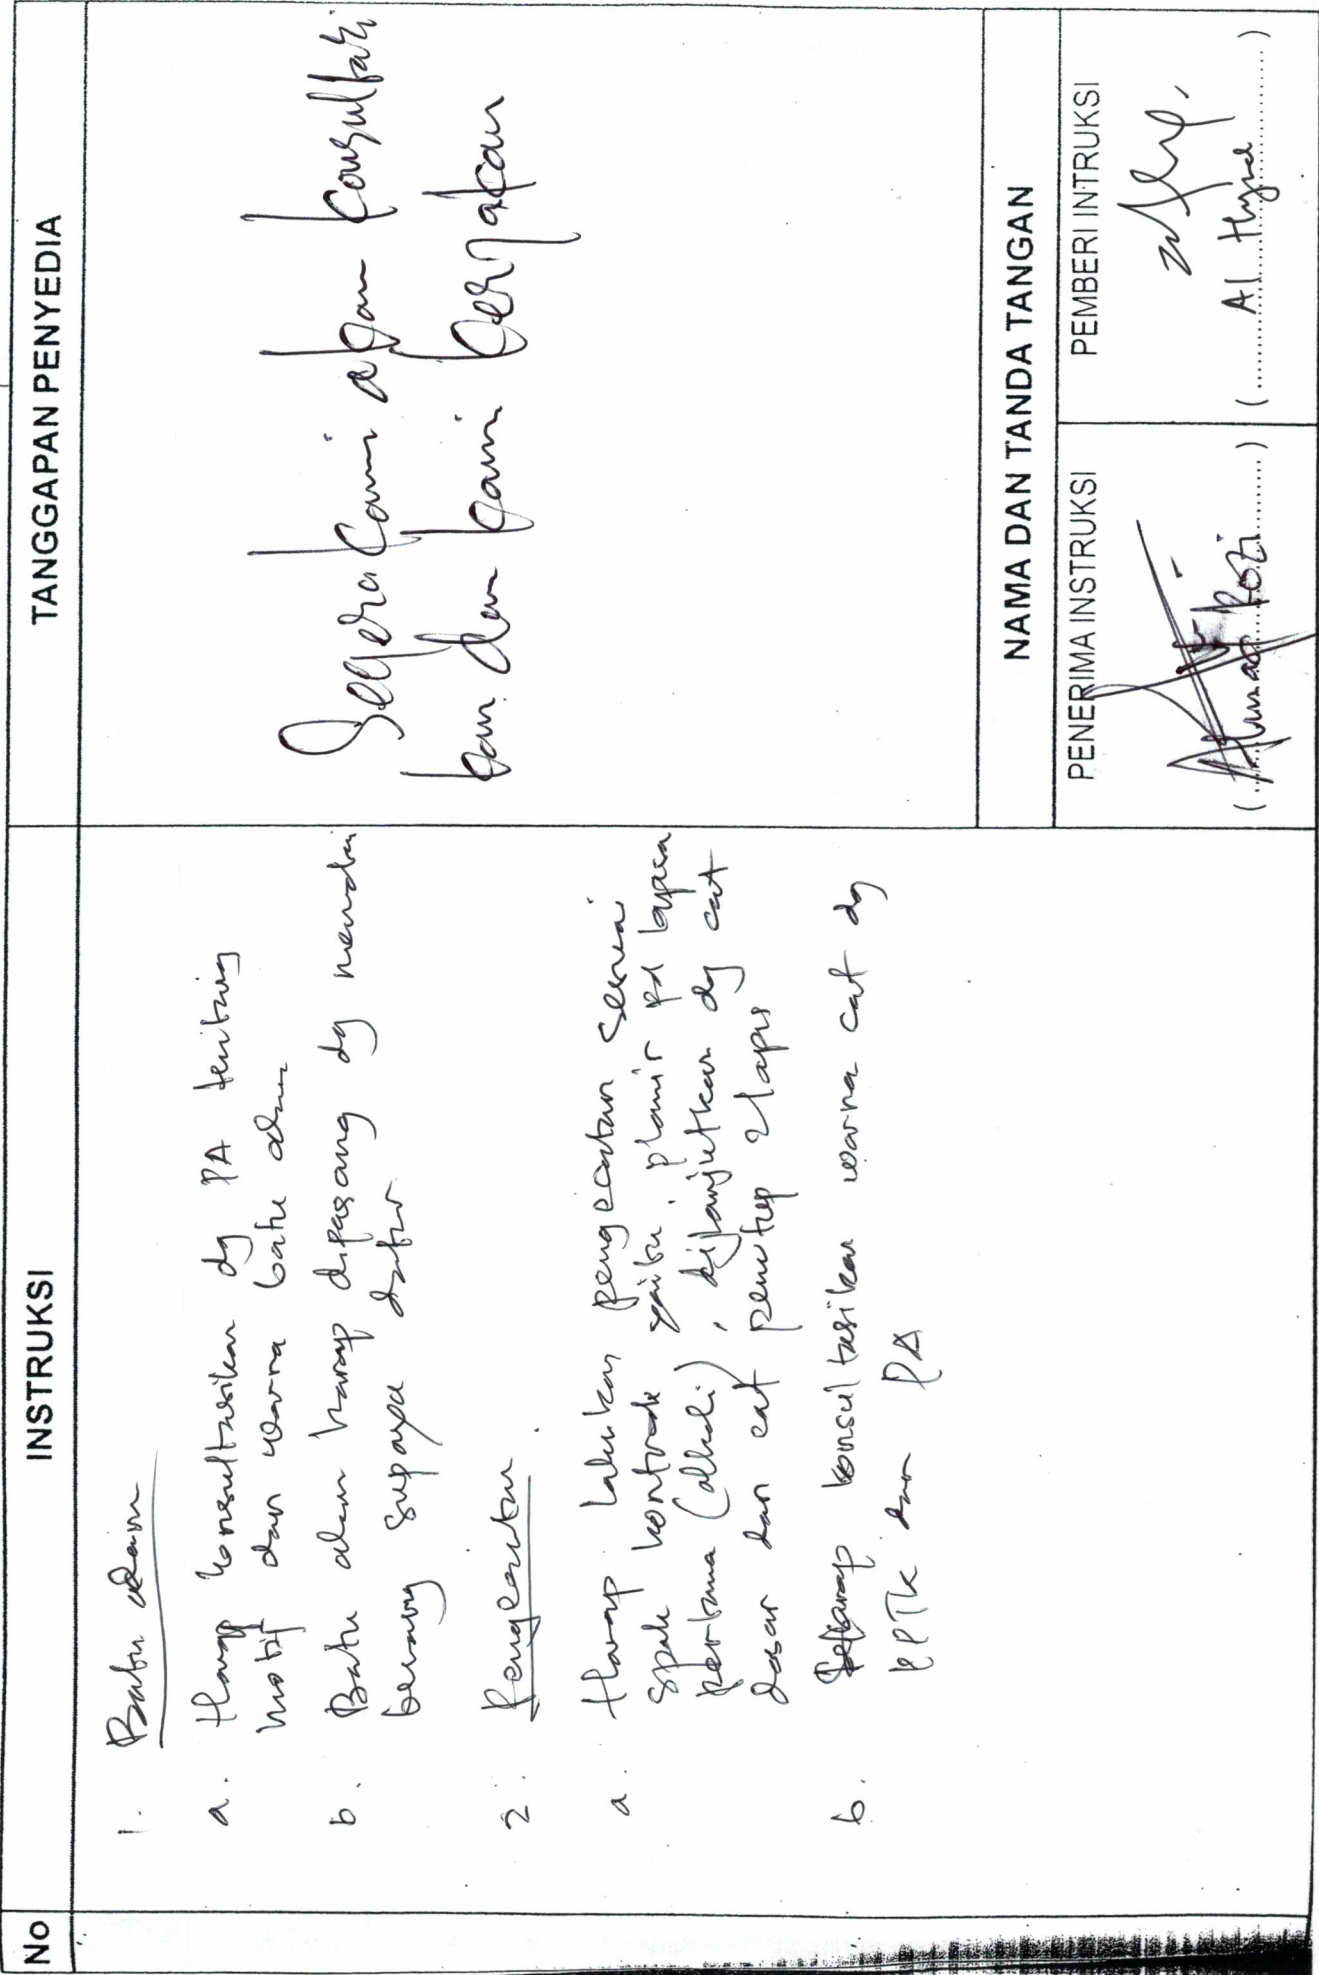 No
INSTRUKSI
TANGGAPAN PENYEDIA
1. Batu alam
a. Harap konsultasikan dg PA tentang
motif dan warna batu alam
b. Batu alam harap dipasang dg
benang supaya datar
2. Pengecatan
a. Harap lakukan pengecatan sesuai
spek kontrak yaitu, plamir pd
pertama (alkali), dilanjutkan dg cat
dasar dan cat penutup 2 lapis
b. konsultasikan warna cat dg
PPTK dan PA
Segera kami akan konsultasi
kan dan kami kerjakan
NAMA DAN TANDA TANGAN
PENERIMA INSTRUKSI
PEMBERI INTRUKSI